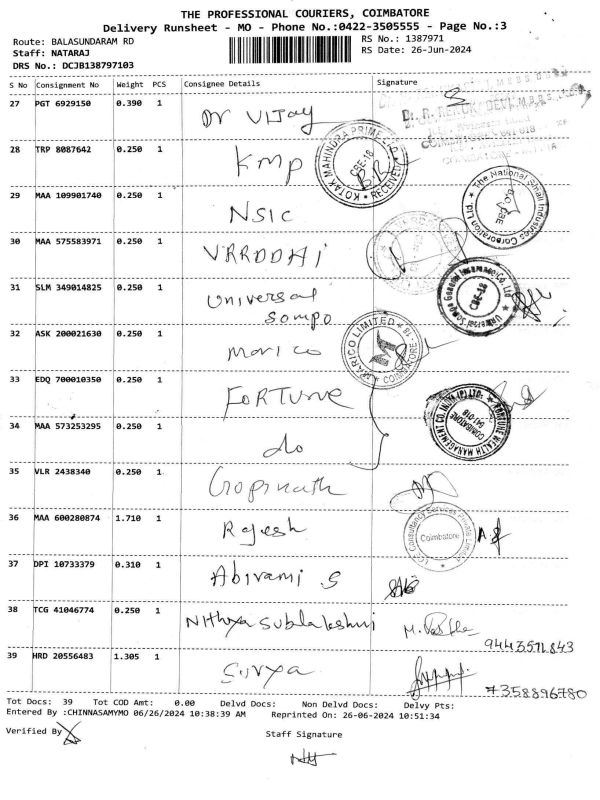 THE PROFESSIONAL COURIERS, COIMBATORE
Delivery Runsheet - MO - Phone No.:0422-3505555 - Page No.:3
Route: BALASUNDARAM RD
RS No.: 1387971
Staff: NATARAJ
RS Date: 26-Jun-2024
DRS No.: DCJB138797103
S No Consignment No Weight PCS Consignee Details Signature
27 PGT 6929150 0.390 1 Dr VIJay
28 TRP 8087642 0.250 1 KMP
KOTAK MAHINDRA PRIME LTD. CBE-18 RECEIVED
29 MAA 109901740 0.250 1 NSIC
The National Small Industries Corporation Ltd.
30 MAA 575583971 0.250 1 VRRDDHI
31 SLM 349014825 0.250 1 Universal
Sompo
Universal Sompo General Insurance Co. Ltd CBE-18
32 ASK 200021630 0.250 1 Marico
MARICO LIMITED COIMBATORE
33 EDQ 700010350 0.250 1 FORTUNE
34 MAA 573253295 0.250 1 do
FORTUNE WEALTH MANAGEMENT CO. INDIA (P) LTD. COIMBATORE 641-018
35 VLR 2438340 0.250 1 Gopinath
36 MAA 600280874 1.710 1 Rajesh
Consultancy Services Private Limited Coimbatore
37 DPI 10733379 0.310 1 Abirami S
38 TCG 41046774 0.250 1 Nithya Sublakshmi
9443571843
39 HRD 20556483 1.305 1 Surya
7358896780
Tot Docs: 39 Tot COD Amt: 0.00 Delvd Docs: Non Delvd Docs: Delvy Pts:
Entered By :CHINNASAMYMO 06/26/2024 10:38:39 AM Reprinted On: 26-06-2024 10:51:34
Verified By
Staff Signature